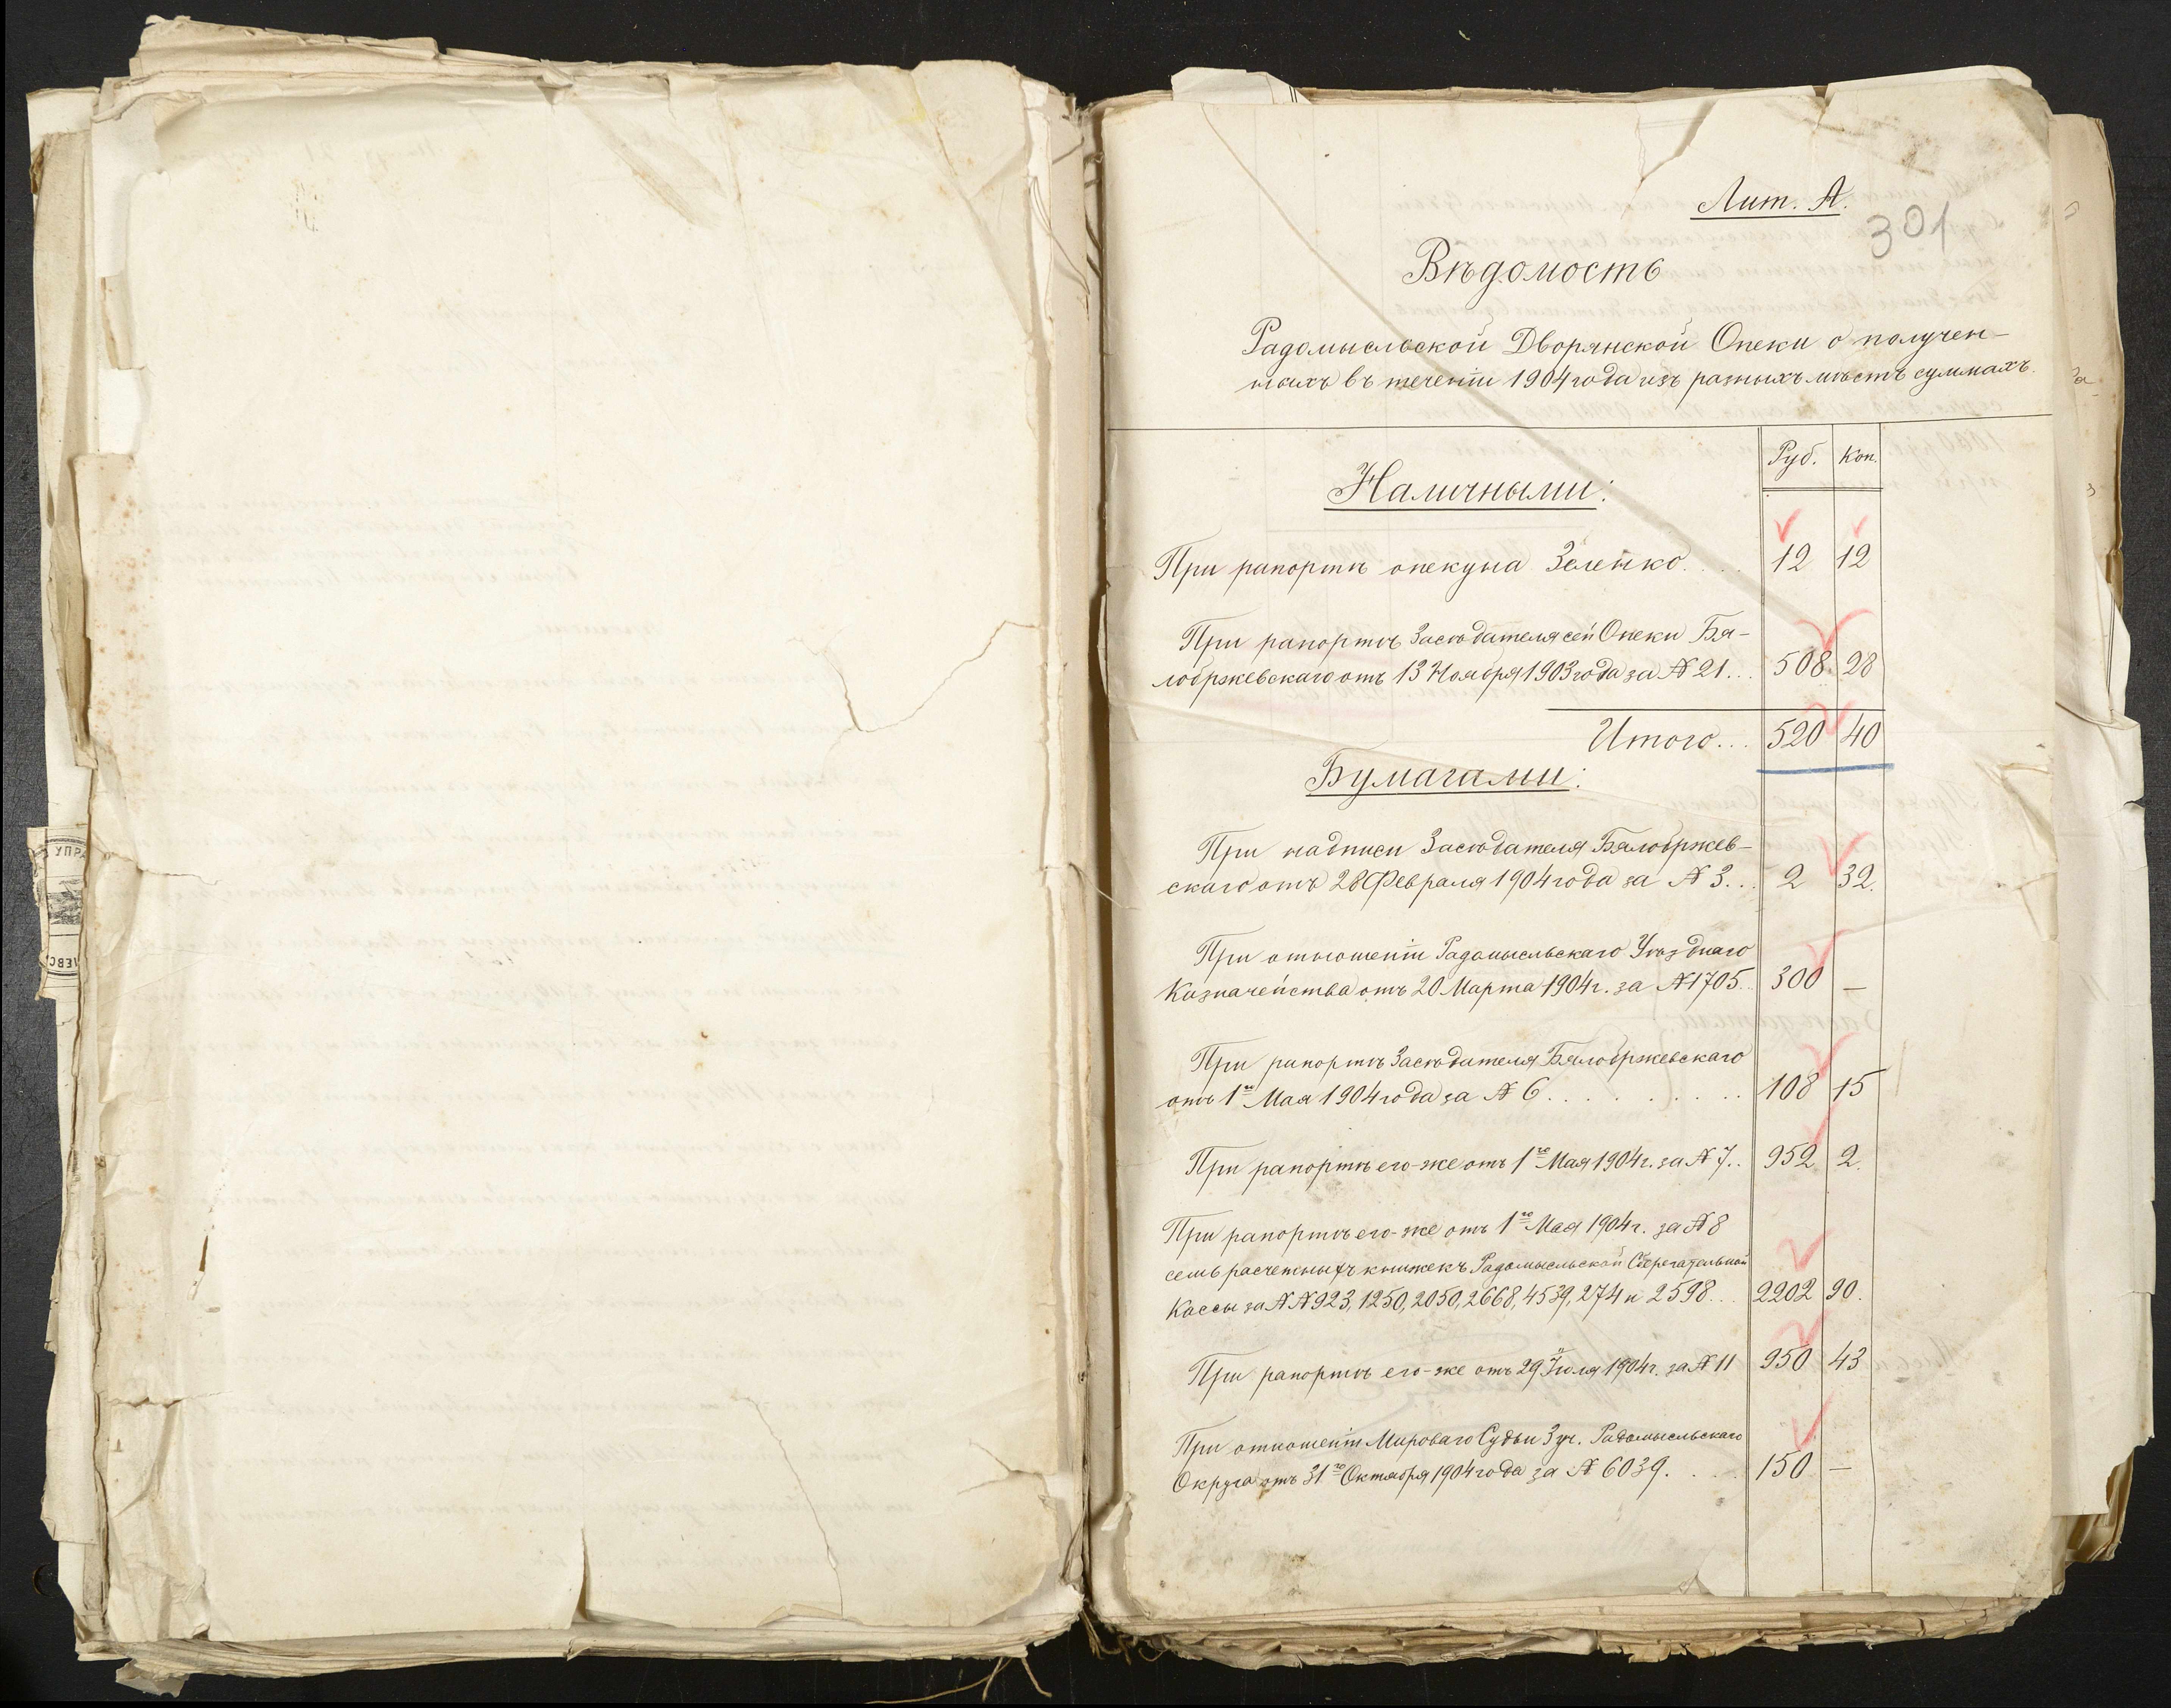 Лит. А.
301
Вѣдомость
Радомысльской Дворянской Опеки о получен-
ныхъ въ теченіи 1904 года изъ разныхъ мѣстъ суммахъ.
Руб. Коп.
Наличными:
При рапортѣ опекуна Зеленко.... 12 12
При рапортѣ Засѣдателя сей Опеки Бя-
лобржевскаго отъ 13 Ноября 1903 года за № 21... 508 28
Итого... 520 40
Бумагами:
При надписи Засѣдателя Бялобржев-
скаго отъ 28 Февраля 1904 года за № 3... 2 32.
При отношеніи Радомысльскаго Уѣзднаго
Казначейства отъ 20 Марта 1904 г. за № 1705.. 300 —
При рапортѣ Засѣдателя Бялобржевскаго
отъ 1го Мая 1904 года за № 6......... 108 15
При рапортѣ его-же отъ 1го Мая 1904 г. за № 7.. 952 2.
При рапортѣ его-же отъ 1го Мая 1904 г. за № 8
семь расчетныхъ книжекъ Радомысльской Сберегательной
Кассы за №№ 923, 1250, 2050, 2668, 4539, 274 и 2598... 2202 90.
При рапортѣ его-же отъ 29 Іюля 1904 г. за № 11 950 43
При отношеніи Мироваго Судьи 3 уч. Радомысльскаго
Округа отъ 31го Октября 1904 года за № 6039.... 150 —
УПРА